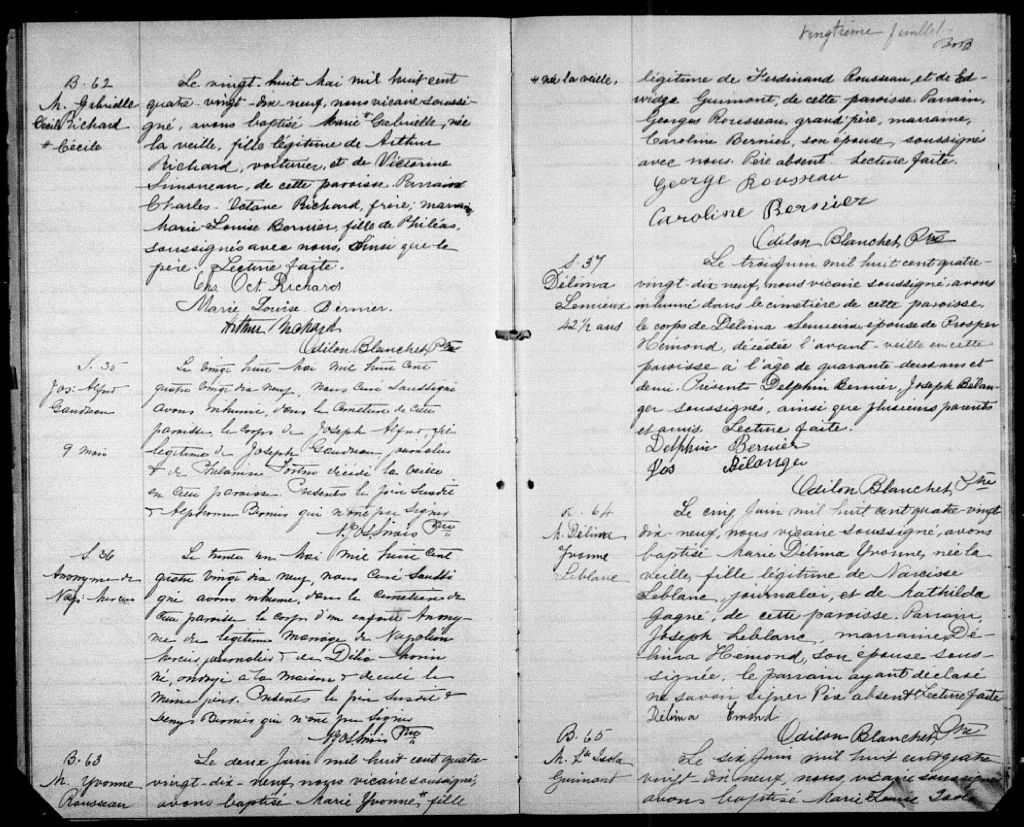 B. 62
M. Gabrielle
Cécile Richard
# Cécile
Le vingt-huit Mai mil huit cent
quatre-vingt-dix neuf, nous vicaire soussi-
gné, avons baptisé Marie # Gabrielle, née
la veille, fille légitime de Arthur
Richard, voiturier, et de Victorine
Simoneau, de cette paroisse. Parrain
Charles-Octave Richard, frère; marraine,
Marie-Louise Bernier, fille de Philéas,
soussignés avec nous, Ainsi que le
père. Lecture faite.
Chs Oct Richard
Marie Louise Bernier.
Arthur Richard
Odilon Blanchet Ptre
S. 35
Jos: Alfred
Gaudreau
9 mois
Le vingt huit Mai mil huit cent
quatre vingt dix neuf, Nous Curé Soussigné
avons inhumé, dans le Cimetière de cette
paroisse le corps de Joseph Alfred, fils
légitime de Joseph Gaudreau journalier
& de Philomène Fortin décédé la veille
en cette paroisse. Présents le père susdit
& Alphonse Bernier qui n'ont pu signer
Ptre
S. 36
Anonyme de
Nap: Morin
Le trente un Mai mil huit cent
quatre vingt dix neuf, nous Curé Soussi
gné avons inhumé, dans le cimetière de
cette paroisse le corps d'un enfant Anony-
me du légitime Mariage de Napoléon
journalier & de Délia Morin
né, ondoyé à la maison & décédé le
même jour. Présents le père susdit &
Denys Bernier qui n'ont pu signer
Ptre
B. 63
M. Yvonne
Rousseau
Le deux Juin mil huit cent quatre-
vingt-dix-neuf, nous vicaire soussigné,
avons baptisé Marie Yvonne #, fille
vingtième feuillet
# née la veille.
légitime de Ferdinand Rousseau, et de Ed-
widge Guimont, de cette paroisse. Parrain,
Georges Rousseau, grand'père, marraine,
Caroline Bernier, son épouse, soussignés
avec nous. Père absent. Lecture faite.
George Rousseau
Caroline Bernier
Odilon Blanchet Ptre
S. 37
Délima
Lemieux
42½ ans
Le trois Juin mil huit cent quatre-
vingt-dix neuf, nous vicaire soussigné, avons
inhumé dans le cimetière de cette paroisse,
le corps de Délima Lemieux, épouse de Prosper
Hémond, décédée l'avant-veille en cette
paroisse à l'âge de quarante deux ans et
demi. Présents Delphin Bernier, Joseph Bélan-
ger soussignés, ainsi que plusieurs parents
et amis. Lecture faite.
Delphin Bernier
Jos Bélanger
Odilon Blanchet, Ptre
B. 64
M. Délima
Yvonne
Leblanc
Le cinq Juin mil huit cent quatre-vingt
dix-neuf, nous vicaire soussigné, avons
baptisé Marie Délima Yvonne, née la
veille, fille légitime de Narcisse
Leblanc, journalier, et de Mathilda
Gagné, de cette paroisse. Parrain,
Joseph Leblanc, marraine, Dé-
lima Hémond, son épouse sous-
signée, le parrain ayant déclaré
ne savoir signer. Père absent. Lecture faite
Délima Emond
Odilon Blanchet, Ptre
B. 65
M. Lse Isola
Guimont
Le six Juin mil huit cent quatre
vingt-dix neuf, nous, vicaire soussigné
avons baptisé Marie Louise Isola